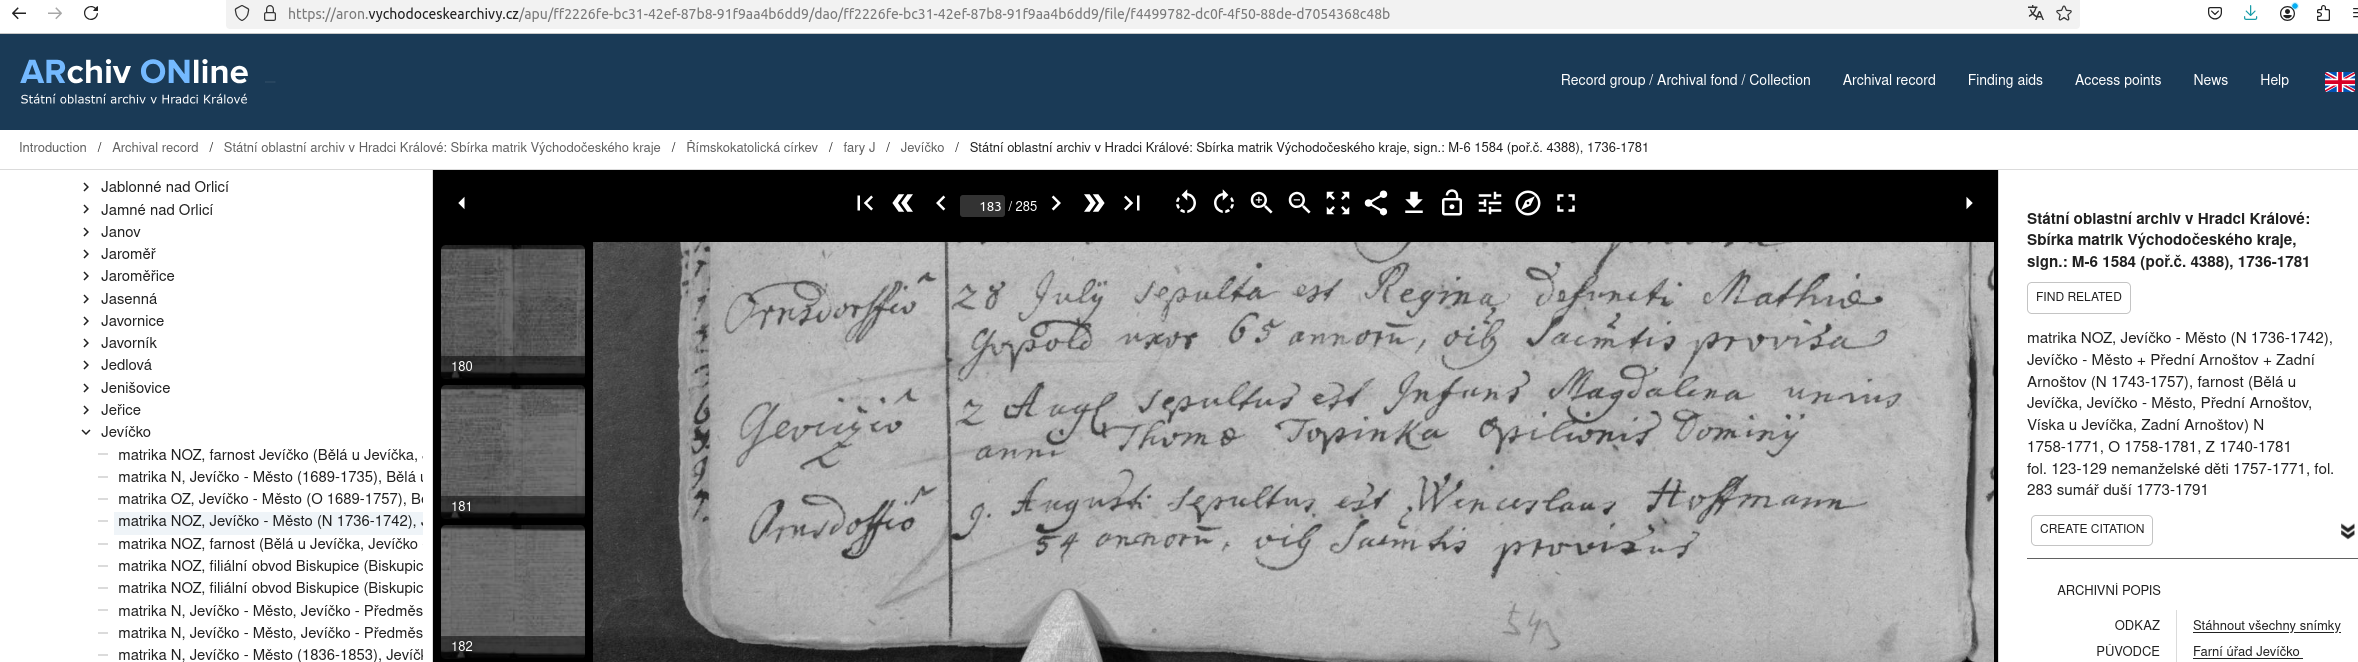 https://aron.vychodoceskearchivy.cz/apu/ff2226fe-bc31-42ef-87b8-91f9aa4b6dd9/dao/ff2226fe-bc31-42ef-87b8-91f9aa4b6dd9/file/f4499782-dc0f-4f50-88de-d7054368c48b
ARchiv ONline
Státní oblastní archiv v Hradci Králové
Record group / Archival fond / Collection
Archival record
Finding aids
Access points
News
Help
Introduction / Archival record / Státní oblastní archiv v Hradci Králové: Sbírka matrik Východočeského kraje / Římskokatolická církev / fary J / Jevíčko / Státní oblastní archiv v Hradci Králové: Sbírka matrik Východočeského kraje, sign.: M-6 1584 (poř.č. 4388), 1736-1781
Jablonné nad Orlicí
Jamné nad Orlicí
Janov
Jaroměř
Jaroměřice
Jasenná
Javornice
Javorník
Jedlová
Jenišovice
Jeřice
Jevíčko
matrika NOZ, farnost Jevíčko (Bělá u Jevíčka,
matrika N, Jevíčko - Město (1689-1735), Bělá u
matrika OZ, Jevíčko - Město (O 1689-1757), Be
matrika NOZ, Jevíčko - Město (N 1736-1742),
matrika NOZ, farnost (Bělá u Jevíčka, Jevíčko
matrika NOZ, filiální obvod Biskupice (Biskupic
matrika NOZ, filiální obvod Biskupice (Biskupic
matrika N, Jevíčko - Město, Jevíčko - Předměs
matrika N, Jevíčko - Město, Jevíčko - Předměs
matrika N, Jevíčko - Město (1836-1853), Jevíč
183 / 285
180
181
182
28 July sepulta est Regina defuncti Mathiæ
uxor 65 annorū, oib Sacmtis provisa
2 Aug sepultus est Infans Magdalena unius
anni Thomæ Topinka Opilionis Dominij
9. Augusti sepultus est Wenceslaus Hoffmann
54 annorū, oib Sacmtis provisus
543
Státní oblastní archiv v Hradci Králové:
Sbírka matrik Východočeského kraje,
sign.: M-6 1584 (poř.č. 4388), 1736-1781
FIND RELATED
matrika NOZ, Jevíčko - Město (N 1736-1742),
Jevíčko - Město + Přední Arnoštov + Zadní
Arnoštov (N 1743-1757), farnost (Bělá u
Jevíčka, Jevíčko - Město, Přední Arnoštov,
Víska u Jevíčka, Zadní Arnoštov) N
1758-1771, O 1758-1781, Z 1740-1781
fol. 123-129 nemanželské děti 1757-1771, fol.
283 sumář duší 1773-1791
CREATE CITATION
ARCHIVNÍ POPIS
ODKAZ Stáhnout všechny snímky
PŮVODCE Farní úřad Jevíčko